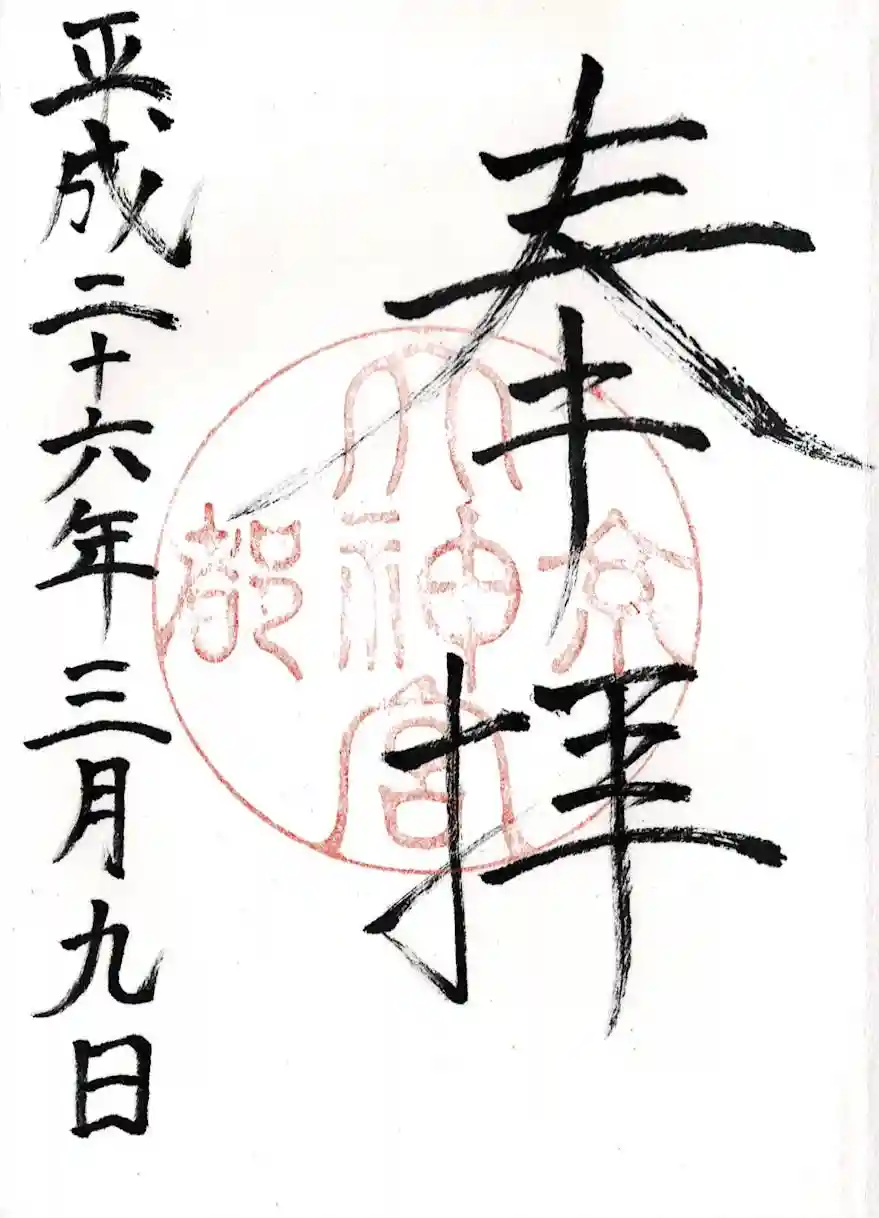 奉拝
京都大神宮
平成二十六年三月九日